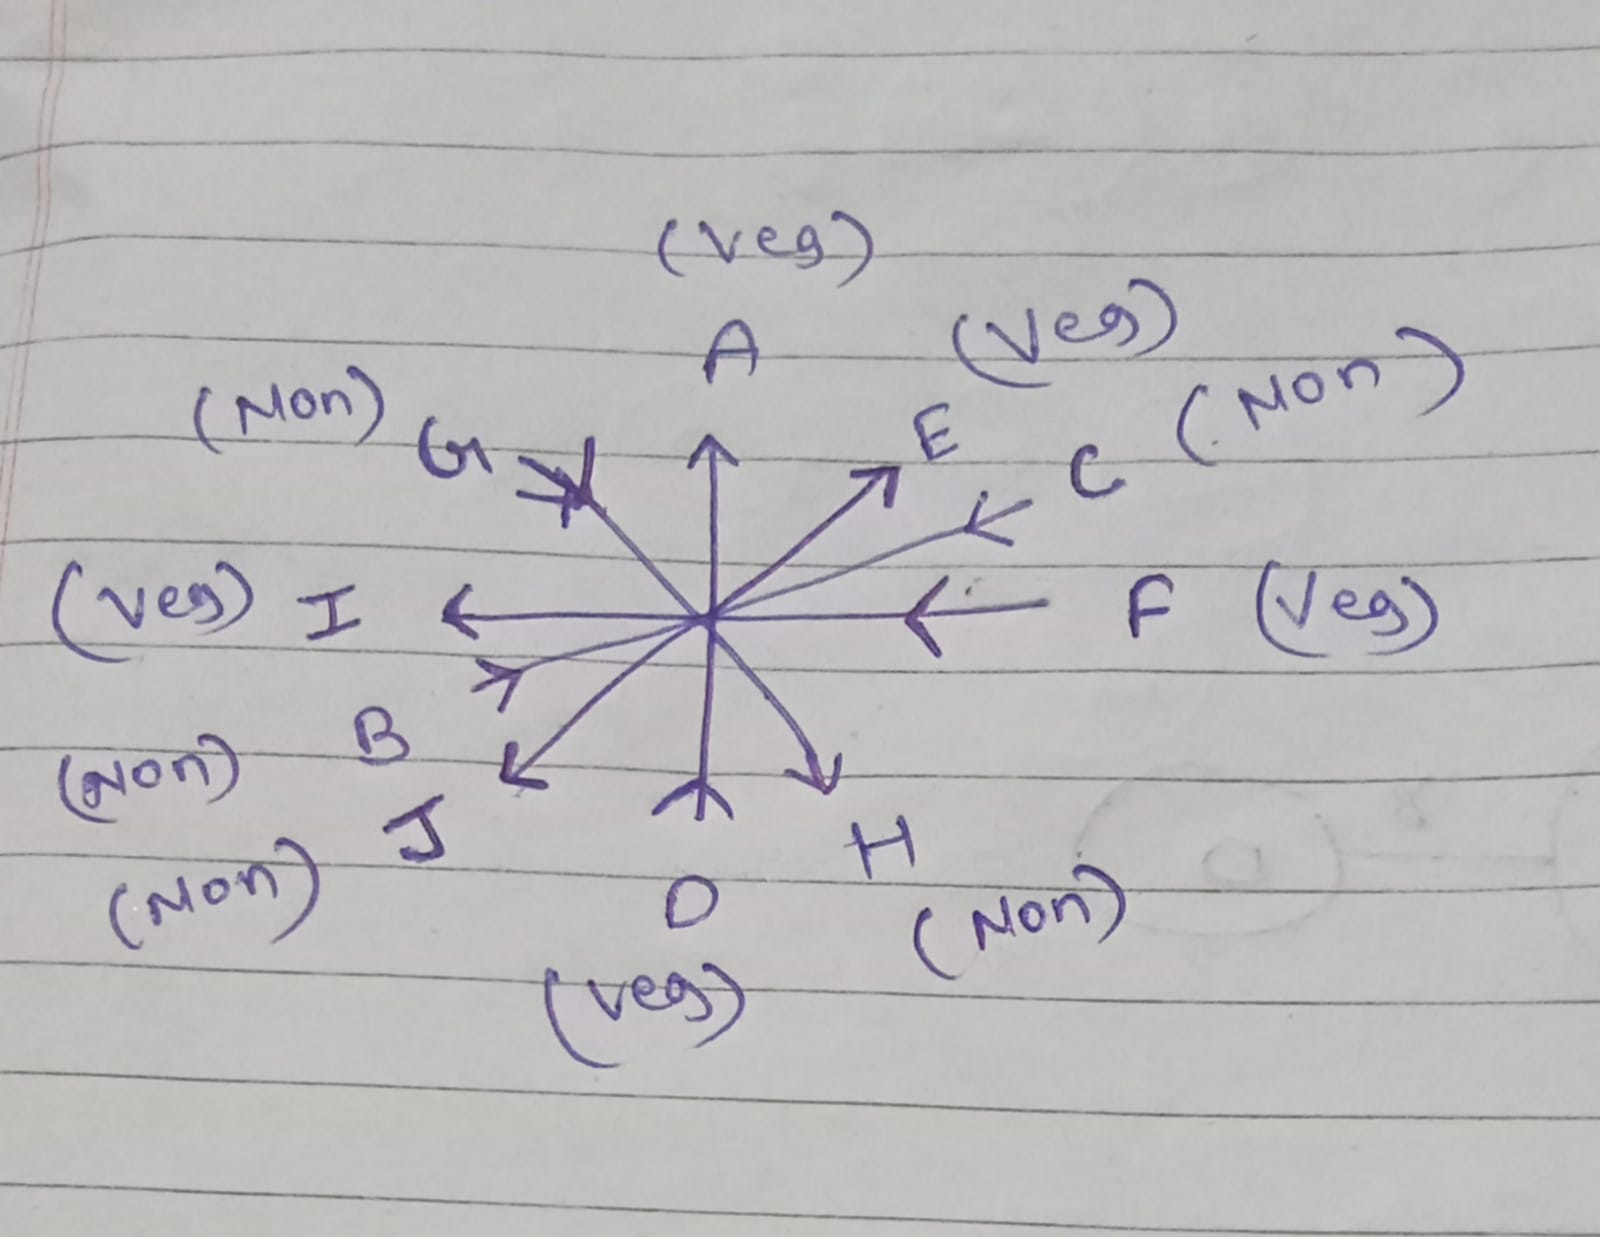 (Veg)
A (Veg)
(Non) G E C (Non)
(Veg) I F (Veg)
(Non) B
(Non) J D H (Non)
(Veg)